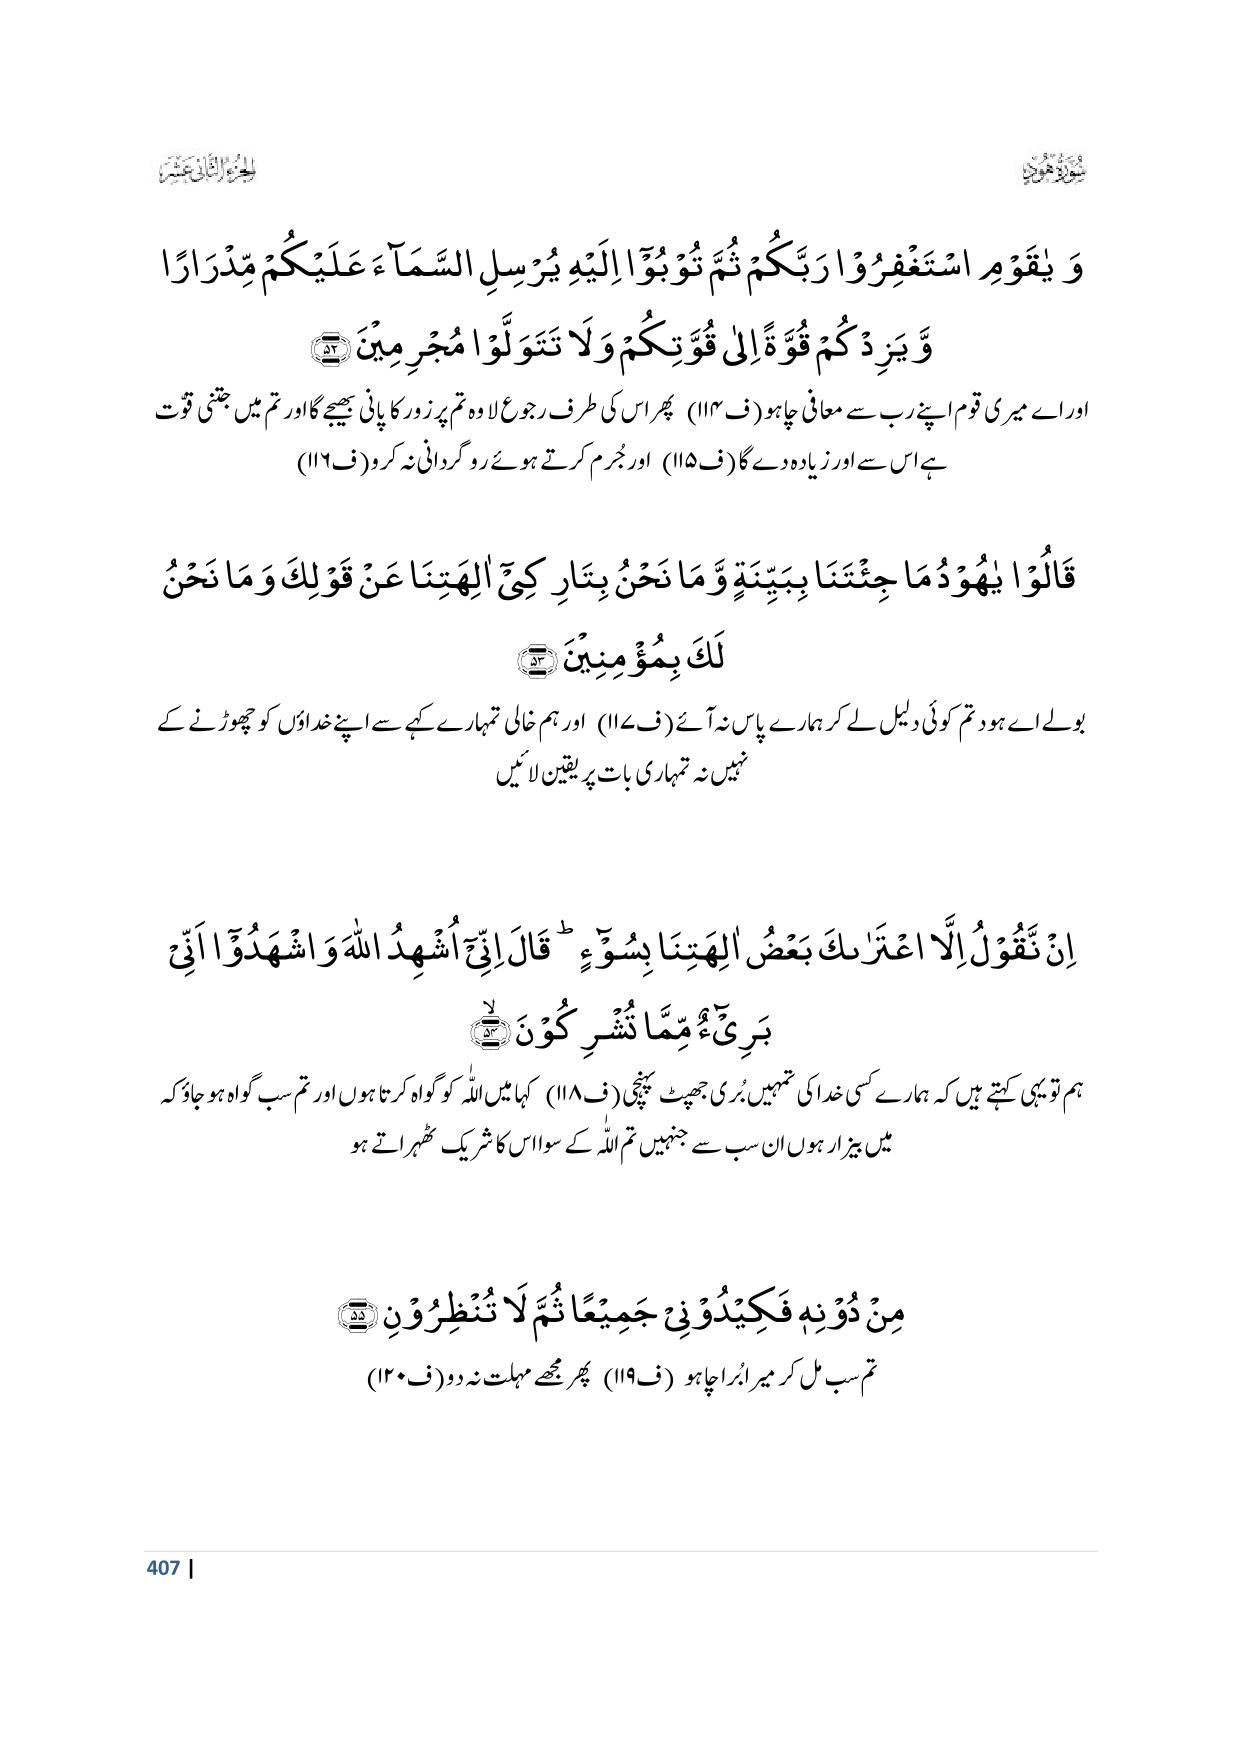 سُوْرَةُ هُوْدٍ
الجزء الثانی عشر
وَ یٰقَوْمِ اسْتَغْفِرُوْا رَبَّكُمْ ثُمَّ تُوْبُوْۤا اِلَیْهِ یُرْسِلِ السَّمَآءَ عَلَیْكُمْ مِّدْرَارًا
وَّ یَزِدْكُمْ قُوَّةً اِلٰى قُوَّتِكُمْ وَ لَا تَتَوَلَّوْا مُجْرِمِیْنَ ﴿۵۲﴾
اور اے میری قوم اپنے رب سے معافی چاہو (ف۱۱۴) پھر اس کی طرف رجوع لا وہ تم پر زور کا پانی بھیجے گا اور تم میں جتنی قوّت
ہے اس سے اور زیادہ دے گا (ف۱۱۵) اور جُرم کرتے ہوئے روگردانی نہ کرو (ف۱۱۶)
قَالُوْا یٰهُوْدُ مَا جِئْتَنَا بِبَیِّنَةٍ وَّ مَا نَحْنُ بِتَارِكِیْۤ اٰلِهَتِنَا عَنْ قَوْلِكَ وَ مَا نَحْنُ
لَكَ بِمُؤْمِنِیْنَ ﴿۵۳﴾
بولے اے ہود تم کوئی دلیل لے کر ہمارے پاس نہ آئے (ف۱۱۷) اور ہم خالی تمہارے کہے سے اپنے خداؤں کو چھوڑنے کے
نہیں نہ تمہاری بات پر یقین لائیں
اِنْ نَّقُوْلُ اِلَّا اعْتَرٰىكَ بَعْضُ اٰلِهَتِنَا بِسُوْٓءٍ ؕ قَالَ اِنِّیْۤ اُشْهِدُ اللّٰهَ وَ اشْهَدُوْۤا اَنِّیْ
بَرِیْٓءٌ مِّمَّا تُشْرِكُوْنَ ﴿ۙ۵۴﴾
ہم تو یہی کہتے ہیں کہ ہمارے کسی خدا کی تمہیں بُری جھپٹ پہنچی (ف۱۱۸) کہا میں اللّٰہ کو گواہ کرتا ہوں اور تم سب گواہ ہو جاؤ کہ
میں بیزار ہوں ان سب سے جنہیں تم اللّٰہ کے سوا اس کا شریک ٹھہراتے ہو
مِنْ دُوْنِهٖ فَكِیْدُوْنِیْ جَمِیْعًا ثُمَّ لَا تُنْظِرُوْنِ ﴿۵۵﴾
تم سب مل کر میرا بُرا چاہو (ف۱۱۹) پھر مجھے مہلت نہ دو (ف۱۲۰)
407 |